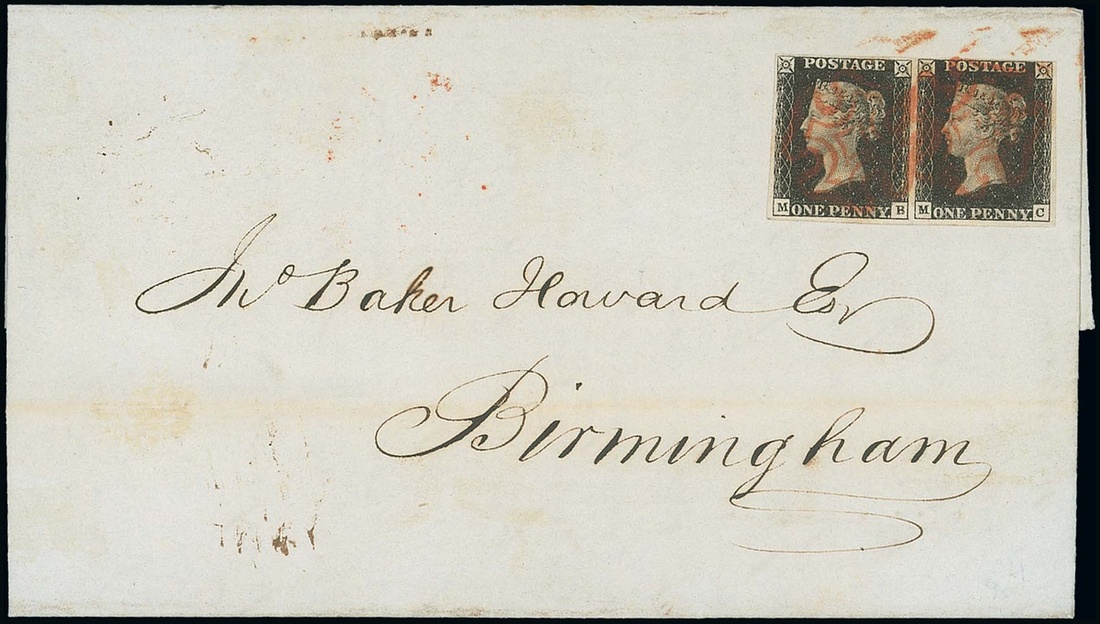 POSTAGE POSTAGE
M ONE PENNY B M ONE PENNY C
Jno Baker Howard Esqr
Birmingham